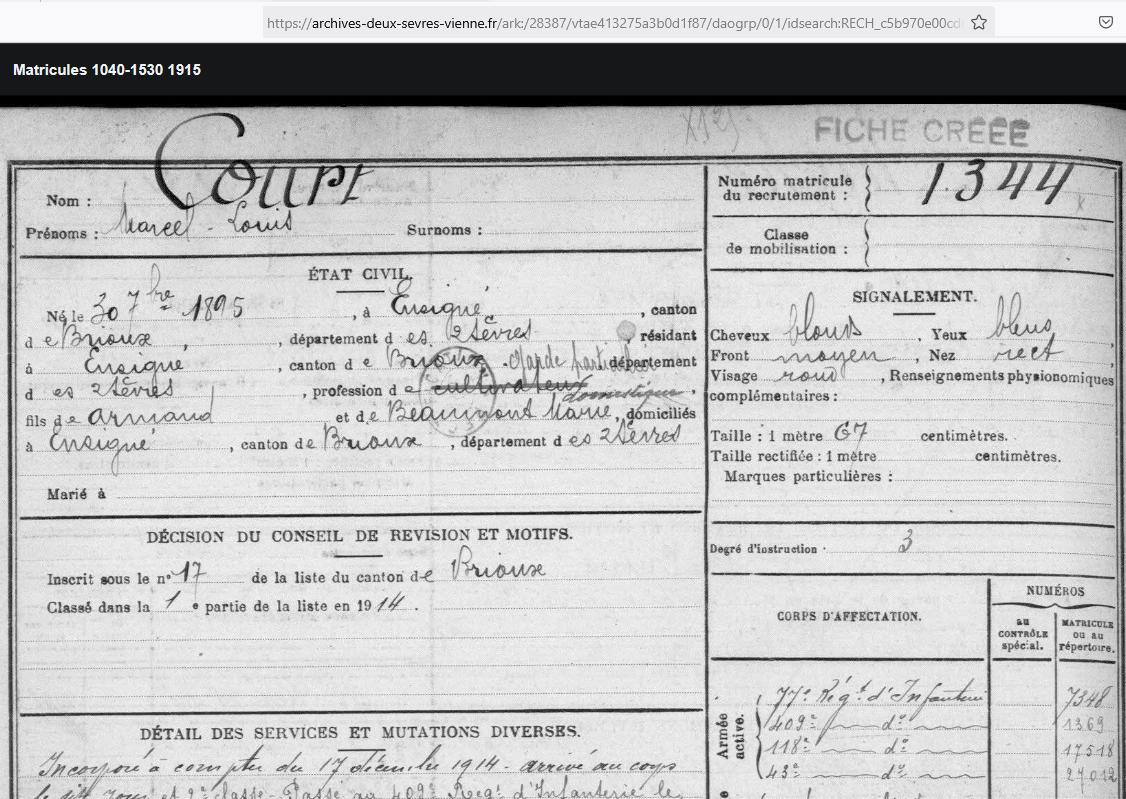 https://archives-deux-sevres-vienne.fr/ark:/28387/vtae413275a3b0d1f87/daogrp/0/1/idsearch:RECH_c5b970e00cd
Matricules 1040-1530 1915
FICHE CRÉÉE
Nom : Coupt
Prénoms : Marcel - Louis Surnoms :
Numéro matricule du recrutement : 1344
Classe de mobilisation :
ÉTAT CIVIL.
Né le 30 7bre 1895, à Ensigné, canton
de Brioux, département des 2 Sèvres résidant
à Ensigné, canton de Brioux département
des 2 Sèvres, profession de cultivateur domestique,
fils de Armand et de Beaumont Marie, domiciliés
à Ensigné, canton de Brioux, département des 2 Sèvres
Marié à
SIGNALEMENT.
Cheveux blonds, Yeux bleus,
Front moyen, Nez rect
Visage rond, Renseignements physionomiques
complémentaires :
Taille : 1 mètre 67 centimètres.
Taille rectifiée : 1 mètre centimètres.
Marques particulières :
Degré d'instruction 3
DÉCISION DU CONSEIL DE REVISION ET MOTIFS.
Inscrit sous le n° 17 de la liste du canton de Brioux
Classé dans la 1e partie de la liste en 1914.
CORPS D'AFFECTATION.
NUMÉROS
au CONTRÔLE spécial.
MATRICULE ou au répertoire.
Armée active.
77e Régt d'Infanterie 7348
409e do 1369
118e do 17518
43e do 27012
DÉTAIL DES SERVICES ET MUTATIONS DIVERSES.
Incorporé à compter du 17 décembre 1914 - arrivé au corps
le dit jour et 2e classe. Passé au 409e Régt d'Infanterie le